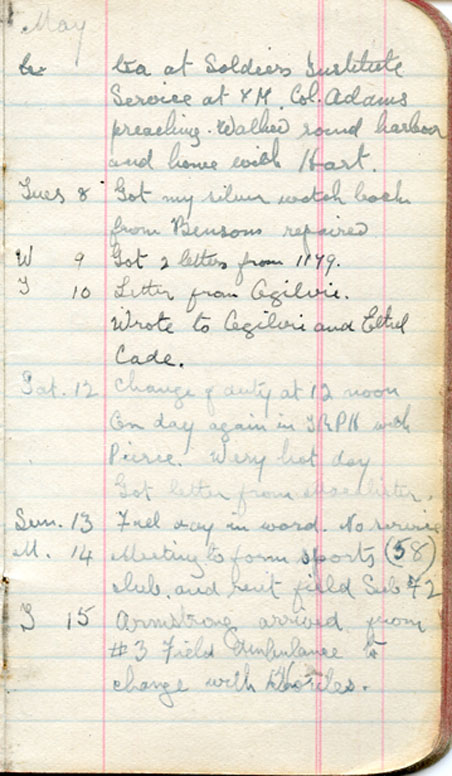 May
6 tea at Soldiers Institute
Service at YM. Col. Adams
preaching. Walked round harbour
and home with Hart.
Tues 8 Got my silver watch back
from Bensons repaired
W 9 Got 2 letters from 1179.
T 10 Letter from Ogilvie.
Wrote to Ogilvie and Ethel
Cade.
Sat. 12 Change of duty at 12 noon
On day again in with
Pierce. Very hot day
Got letter from
Sun. 13 Full day in ward. No service
M. 14 Meeting to form sports (58)
club, and rent field Sub 72
T 15 Armstrong arrived from
#3 Field Ambulance to
change with